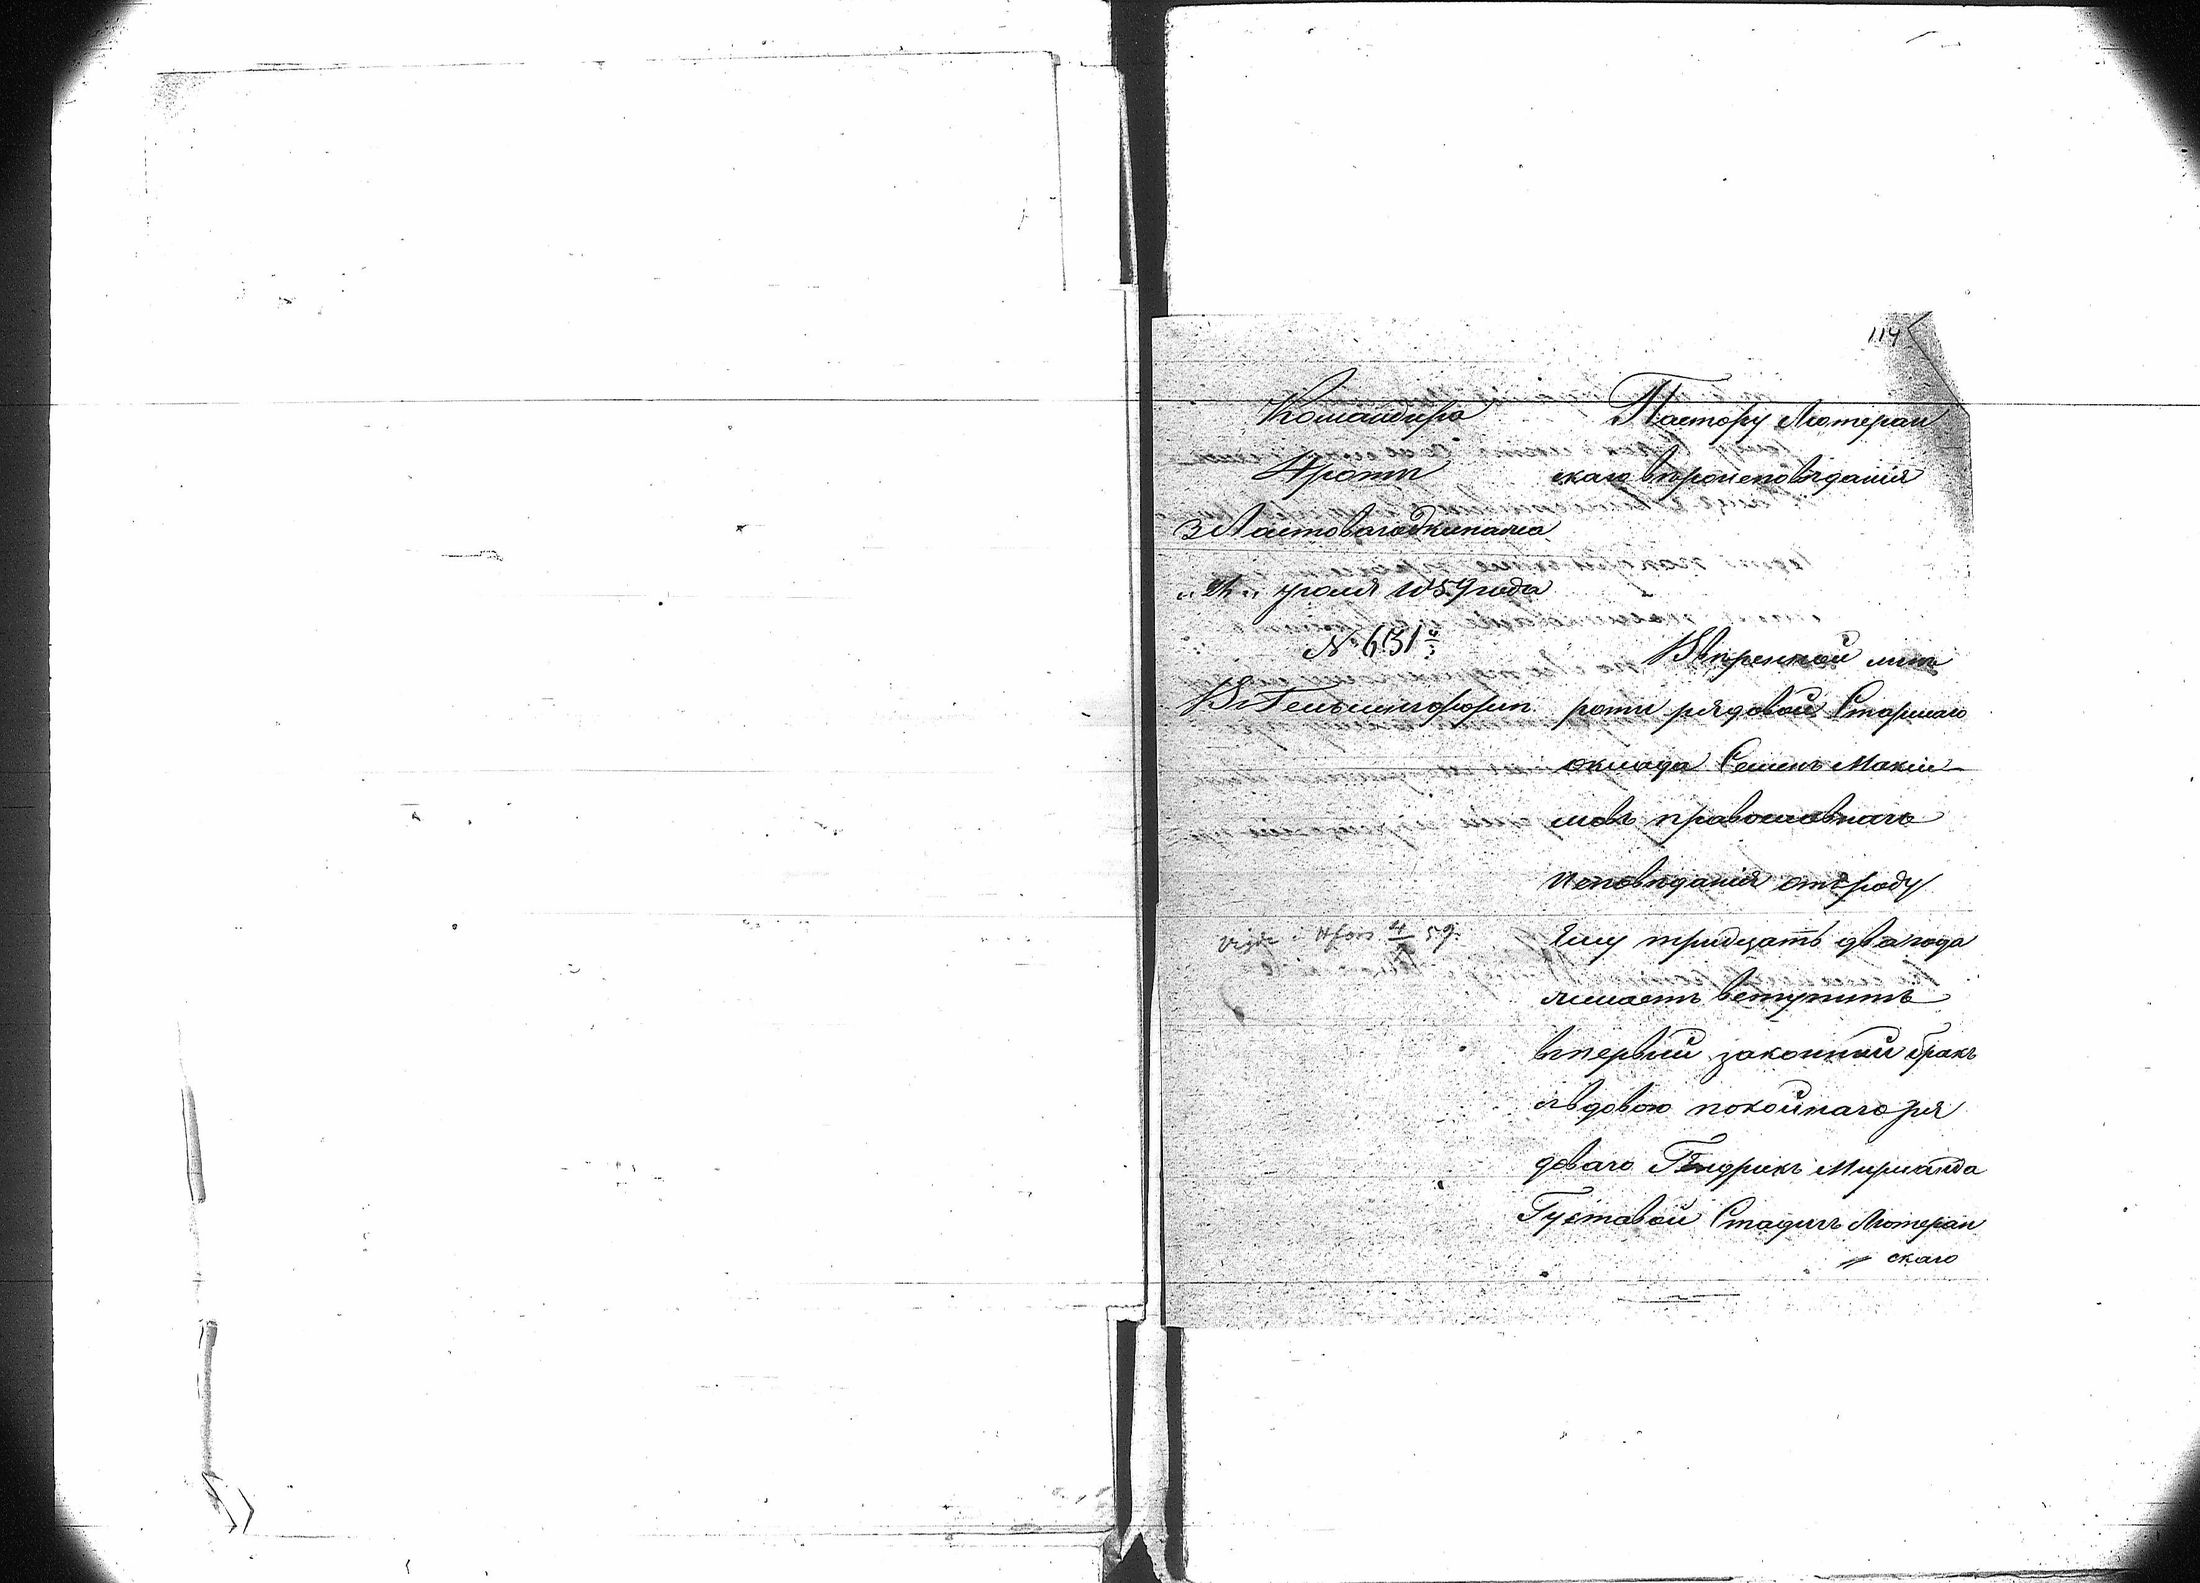 114
Командира
4 роты
3 Ластоваго Экипажа
юля 1859 года
№ 631
Въ Гельсингфорсъ
Пастору Лютеран
скаго вѣроисповѣданія
Ввѣренной мнѣ
роты рядовой Старшаго
оклада Семенъ Макси
мовъ православнаго
исповѣданія отъ роду
Ему тридцать два года
желаетъ вступить
въ первый законный бракъ
съ вдовою покойнаго ря
доваго Гендрикъ
Густавой Лютеран
скаго
Hfors 4/8 59.